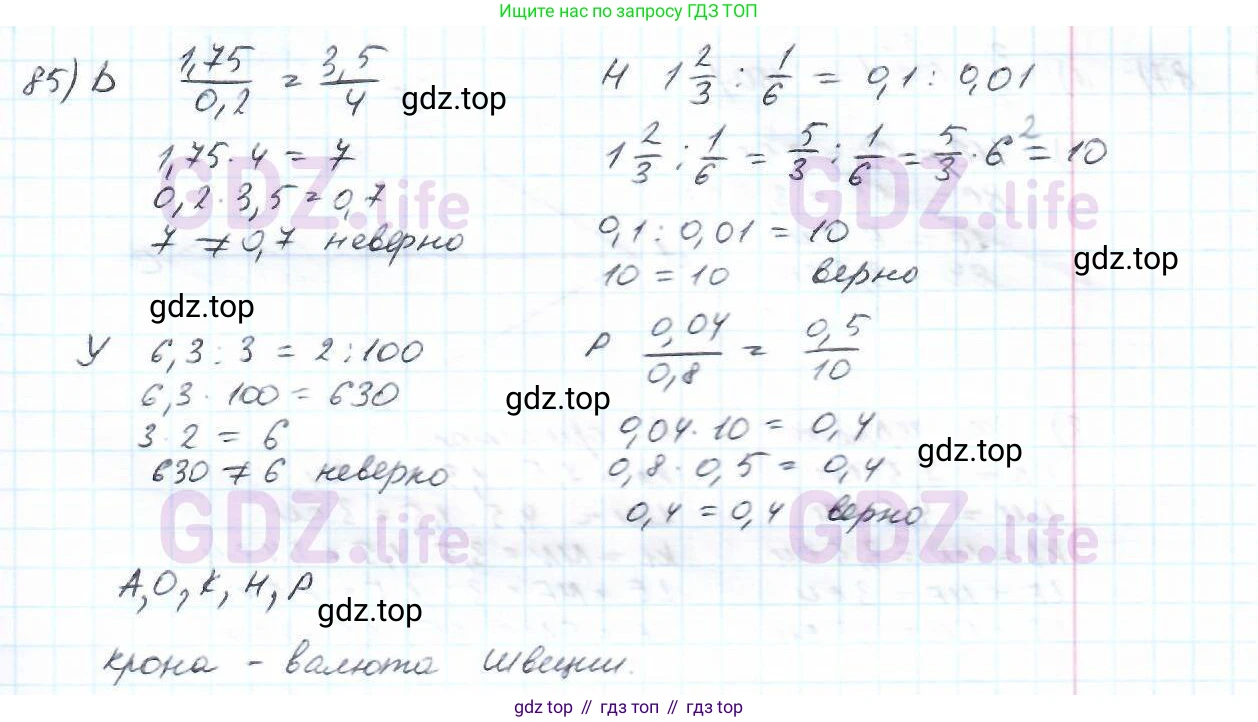 Ищите нас по запросу ГДЗ ТОП
85) D 1,75/0,2 = 3,5/4
1,75 · 4 = 7
0,2 · 3,5 = 0,7
7 ≠ 0,7 неверно
Н 1 2/3 : 1/6 = 0,1 : 0,01
1 2/3 : 1/6 = 5/3 : 1/6 = 5/3 · 6 2 = 10
0,1 : 0,01 = 10
10 = 10 верно
У 6,3 : 3 = 2 : 100
6,3 · 100 = 630
3 · 2 = 6
630 ≠ 6 неверно
Р 0,04/0,8 = 0,5/10
0,04 · 10 = 0,4
0,8 · 0,5 = 0,4
0,4 = 0,4 верно
А, О, К, Н, Р
крона - валюта Швеции.
gdz.top
gdz.top
gdz.top
gdz.top
gdz.top
gdz.top
GDZ.life
GDZ.life
GDZ.life
GDZ.life
gdz.top // гдз топ // gdz top